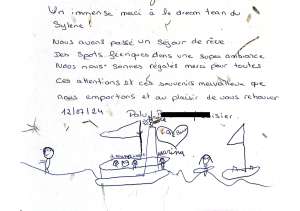 Un immense merci à la dream team du
Sylene !
Nous avons passé un séjour de rêve
Des Spots féeriques dans une super ambiance
Nous nous sommes régalés merci pour toutes
Ces attentions et ces souvenirs merveilleux que
nous emportons et au plaisir de vous retrouver
12/07/24